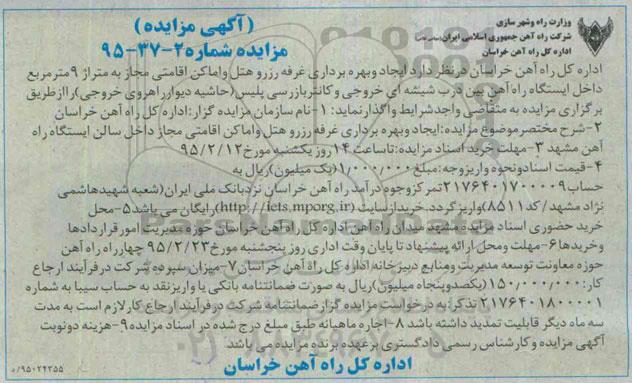 (آگهی مزایده)
مزایده شماره ۲-۳۷-۹۵
وزارت راه وشهر سازی
شرکت راه آهن جمهوری اسلامی ایران
اداره کل راه آهن خراسان
اداره کل راه آهن خراسان درنظر دارد ایجاد وبهره برداری غرفه رزرو هتل واماکن اقامتی مجاز به متراژ ۹مترمربع
داخل ایستگاه راه آهن بین درب شیشه ای خروجی و کانتربازرسی پلیس(حاشیه دیوارراهروی خروجی)رااز طریق
برگزاری مزایده به متقاضی واجدشرایط واگذارنماید: ۱-نام سازمان مزایده گزار:اداره کل راه آهن خراسان
۲-شرح مختصرموضوع مزایده:ایجاد وبهره برداری غرفه رزرو هتل واماکن اقامتی مجاز داخل سالن ایستگاه راه
آهن مشهد ۳-مهلت خرید اسناد مزایده:تاساعت ۱۴ روز یکشنبه مورخ ۹۵/۲/۱۲
۴-قیمت اسنادونحوه واریزوجه:مبلغ ۱/۰۰۰/۰۰۰(یک میلیون)ریال به
حساب۲۱۷۶۴۰۱۷۰۰۰۰۹تمرکزوجوه درآمد راه آهن خراسان نزدبانک ملی ایران(شعبه شهیدهاشمی
نژاد مشهد/کد۸۵۱۱)واریز گردد.خریدازسایت (http://iets.mporg.ir)رایگان می باشد۵-محل
خرید حضوری اسناد مزایده مشهد میدان راه آهن اداره کل راه آهن خراسان حوزه مدیریت امور قراردادها
وخریدها۶-مهلت ومحل ارائه پیشنهاد تا پایان وقت اداری روز پنجشنبه مورخ۹۵/۲/۲۳چهارراه راه آهن
حوزه معاونت توسعه مدیریت ومنابع دبیرخانه اداره کل راه آهن خراسان۷-میزان سپرده شرکت در فرآیند ارجاع
کار:۱۵۰/۰۰۰/۰۰۰(یکصدوپنجاه میلیون)ریال به صورت ضمانتنامه بانکی یا واریزنقد به حساب سیبا به شماره
۲۱۷۶۴۰۱۸۰۰۰۰۱ تذکر:به درخواست مزایده گزارضمانتنامه شرکت در فرآیند ارجاع کارلازم است به مدت
سه ماه دیگر قابلیت تمدید داشته باشد ۸-اجاره ماهیانه طبق مبلغ درج شده در اسناد مزایده۹-هزینه دونوبت
آگهی مزایده وکارشناس رسمی دادگستری برعهده برنده مزایده می باشد
اداره کل راه آهن خراسان
۹۵۰۲۴۳۵۵/م